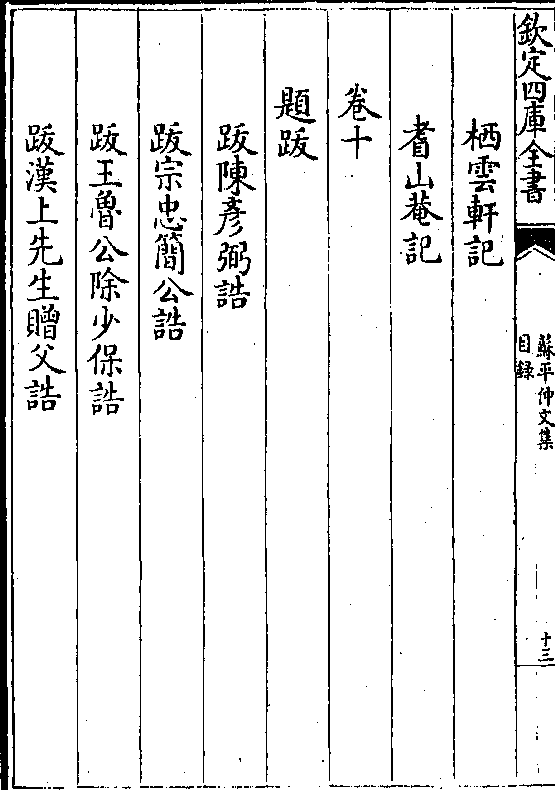 欽定四庫全書
蘇平仲文集
目録
十三
栖雲軒記
耆山菴記
卷十
題跋
跋陳彥弼誥
跋宗忠簡公誥
跋王魯公除少保誥
跋漢上先生贈父誥